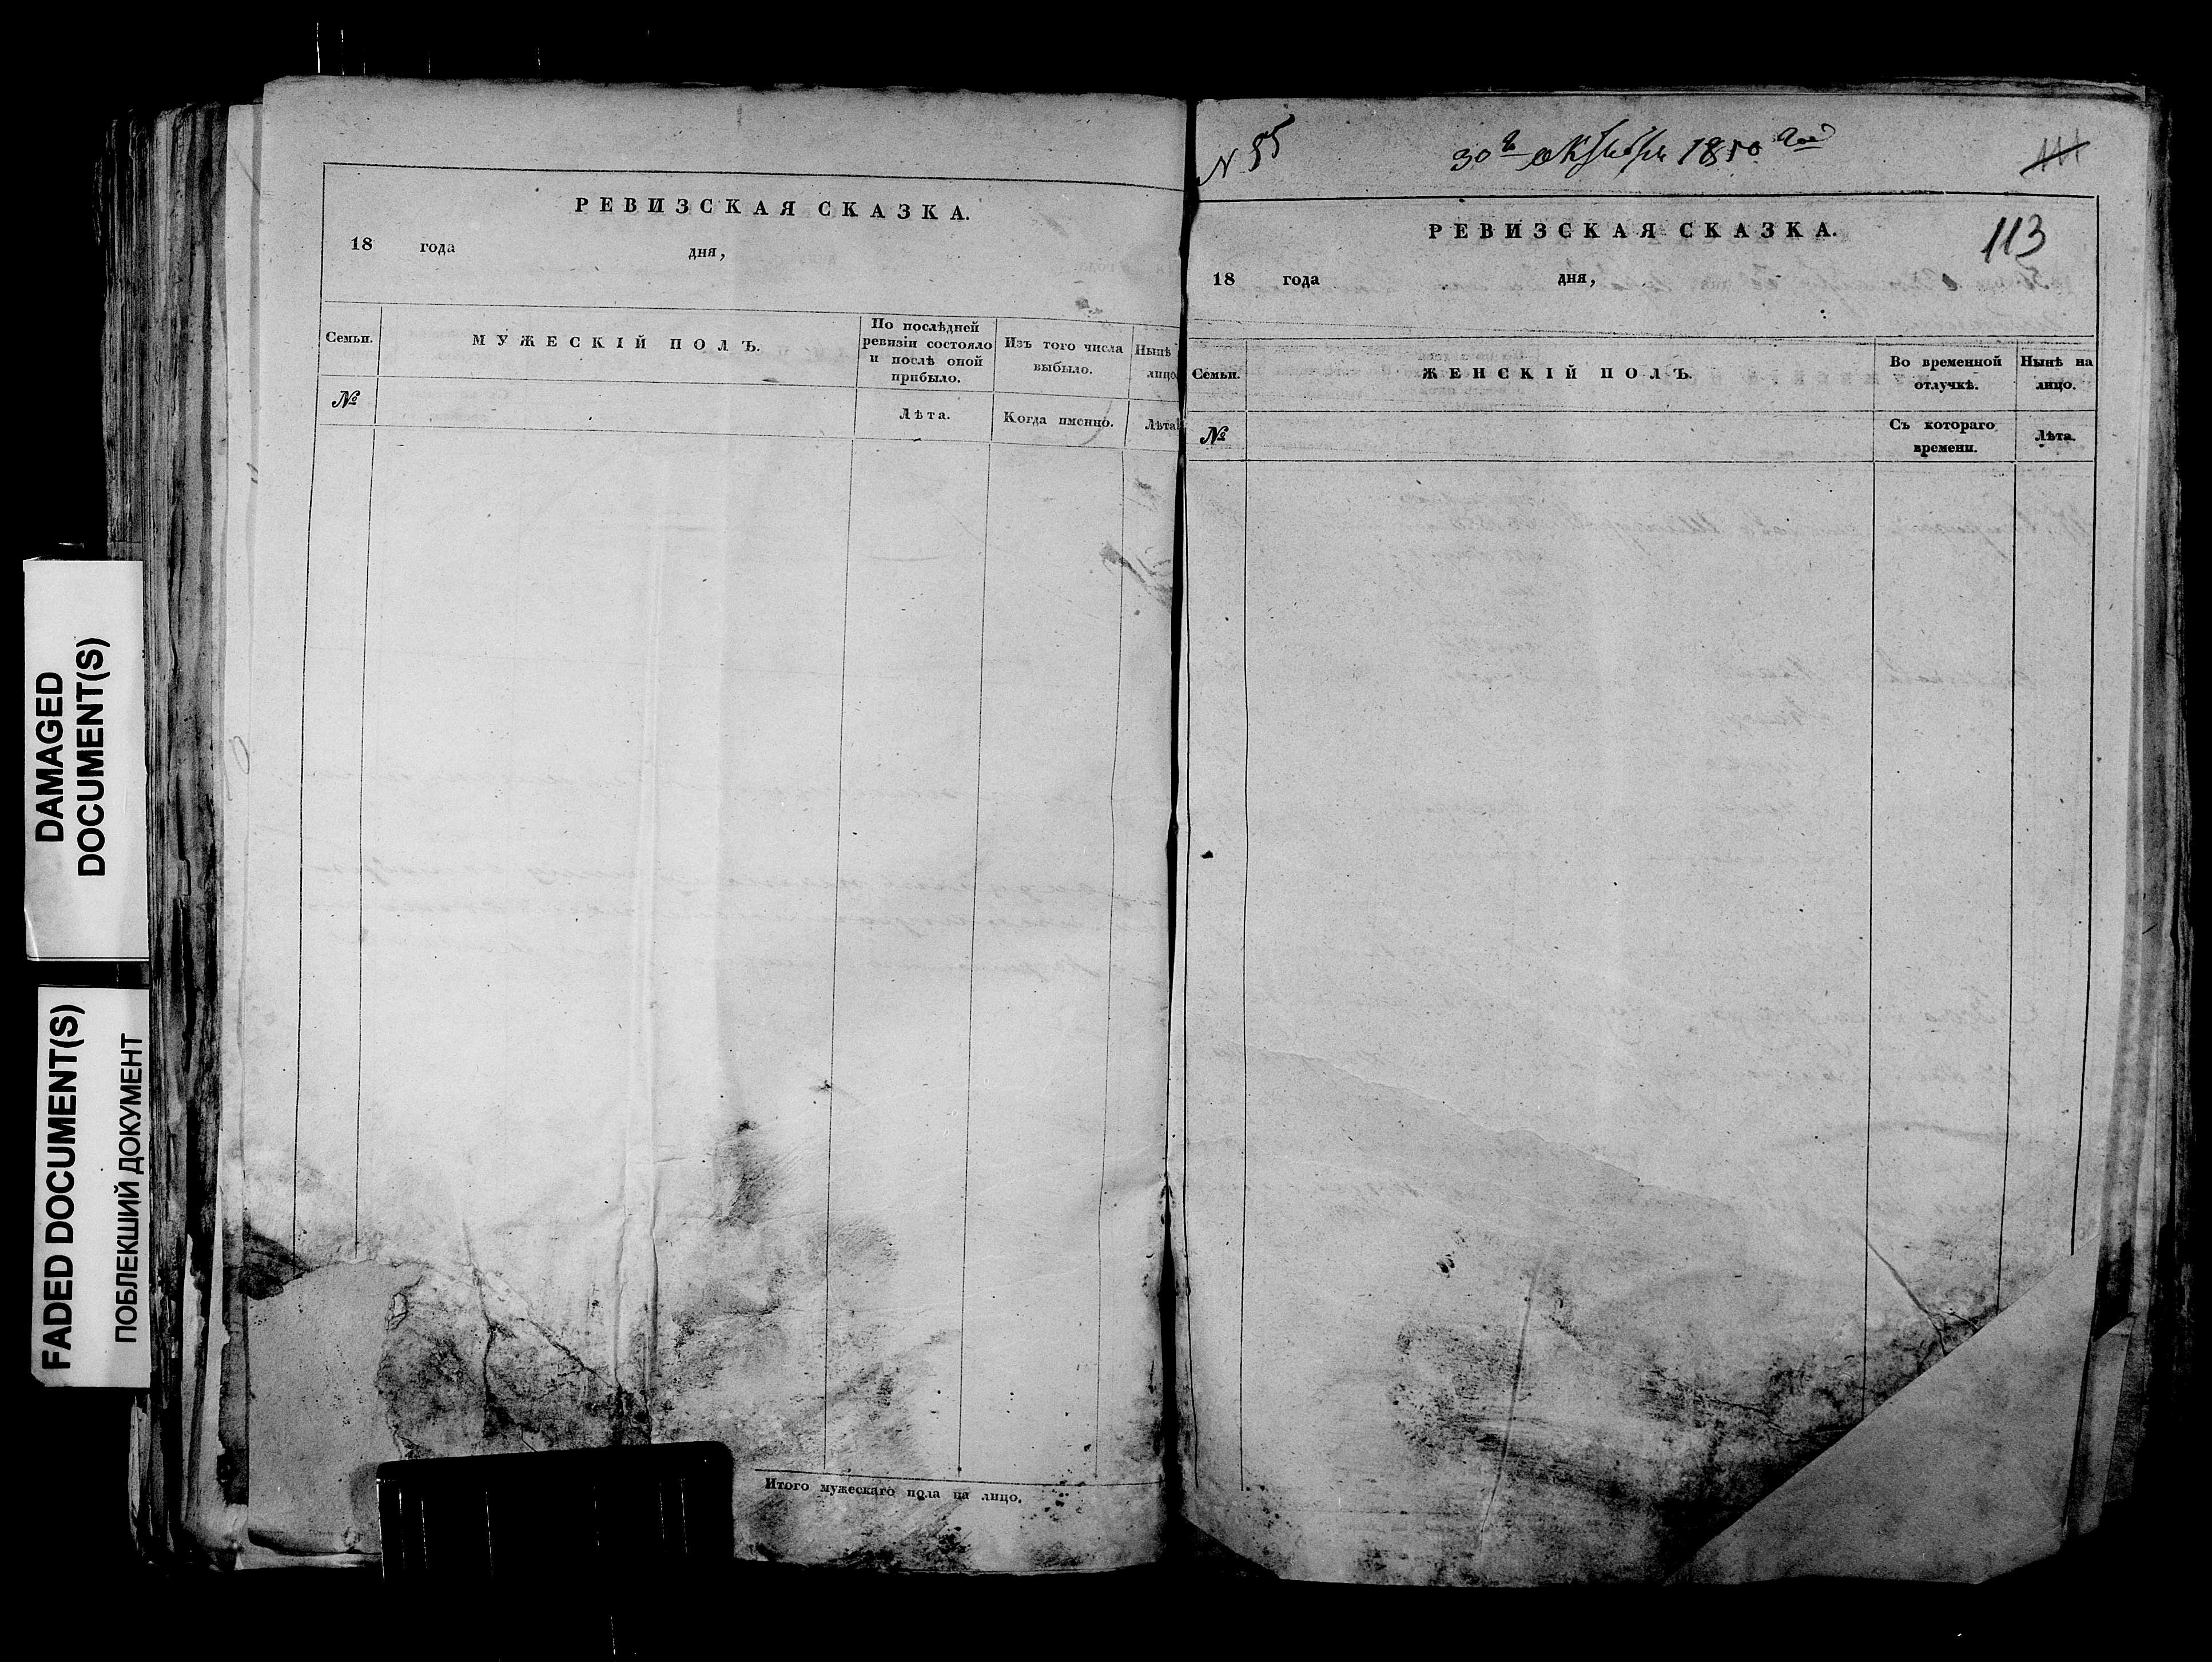 DAMAGED
DOCUMENT(S)
FADED DOCUMENT(S)
ПОБЛЕКШИЙ ДОКУМЕНТ
РЕВИЗСКАЯ СКАЗКА.
18 года дня,
Семьи.
МУЖЕСКІЙ ПОЛЪ.
По послѣдней
ревизіи состояло
и послѣ оной
прибыло.
Изъ того числа
выбыло.
Нынѣ
лицо
№
Лѣта.
Когда именно.
Лѣта
Итого мужескаго пола на лицо.
N 85
30го октября 1850 года
111
РЕВИЗСКАЯ СКАЗКА.
113
18 года дня,
Семьи.
ЖЕНСКІЙ ПОЛЪ.
Во временной
отлучкѣ.
Нынѣ на
лицо.
№
Съ котораго
времени.
Лѣта.